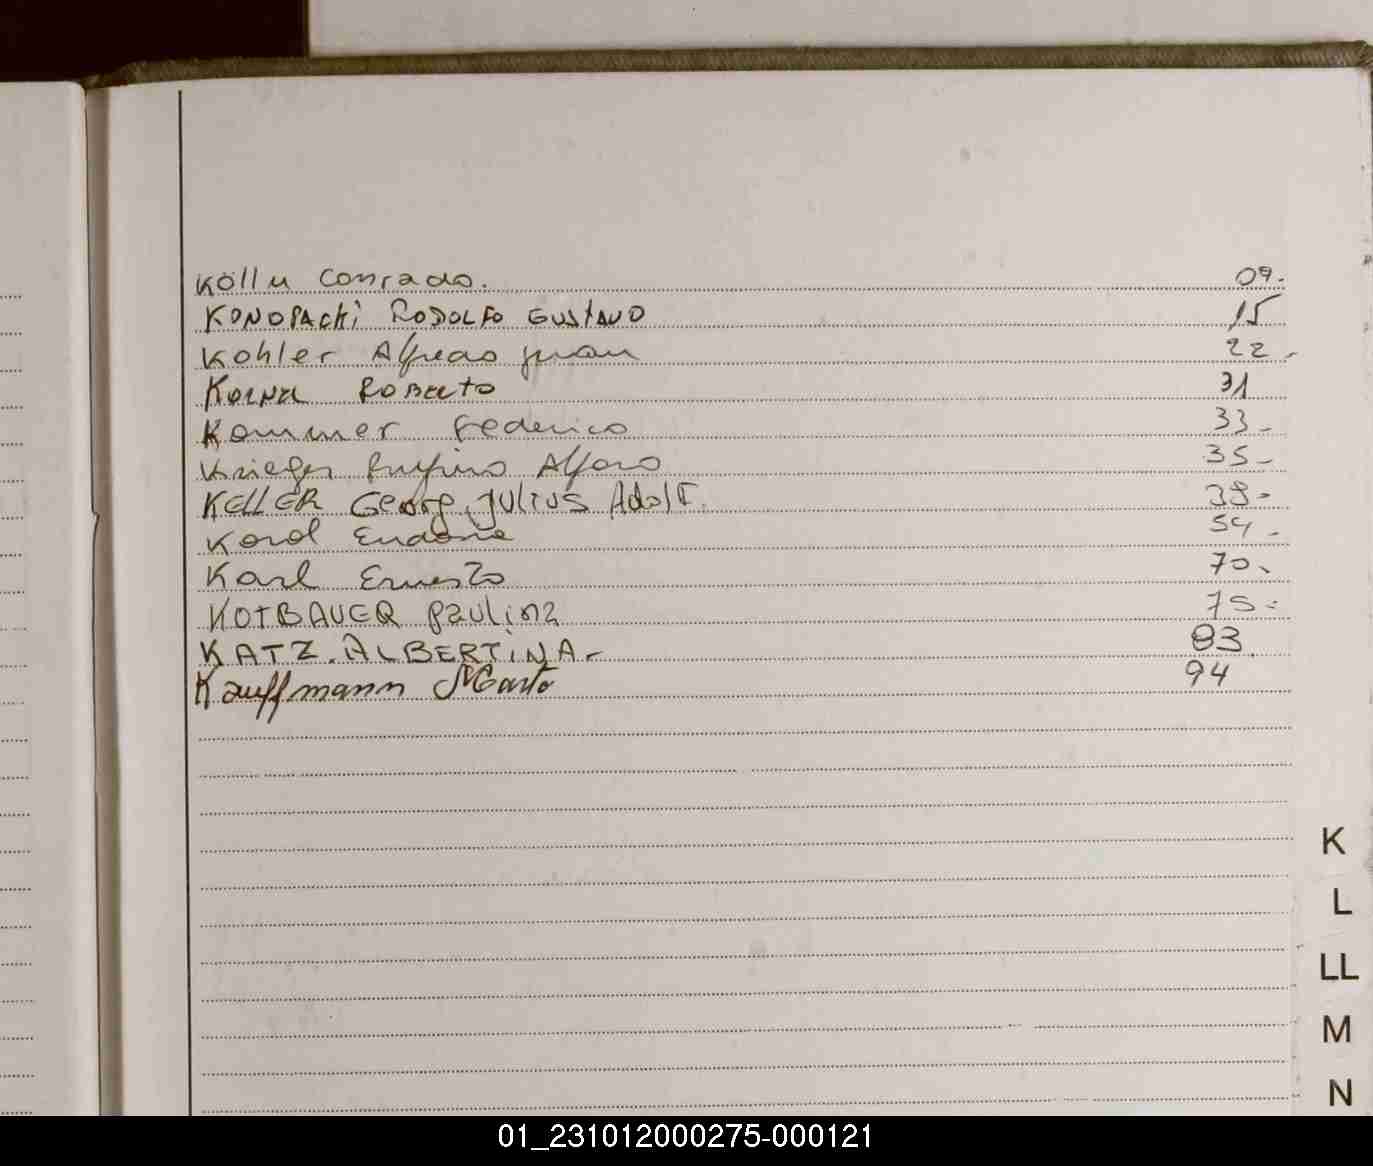 Köllu Conrado. 09.
KONOPACKi RODOLFO GUSTAVO 15
Kohler Alfredo Juan 22.
Roberto 31
Kommer Federico 33.
Krieger Rufino Alfaro 35-
KELLER Georg Julius Adolf. 38-
54.
Karl Ernesto 70.
KOTBAUER Paulina 75-
KATZ. ALBERTINA- 83
Kauffmann 94
K
L
LL
M
N
01_231012000275-000121